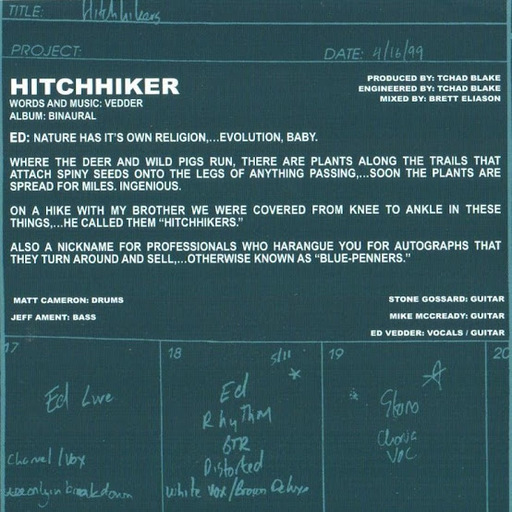 TITLE: Hitchhikers
PROJECT: DATE: 4/16/99
HITCHHIKER
WORDS AND MUSIC: VEDDER
ALBUM: BINAURAL
PRODUCED BY: TCHAD BLAKE
ENGINEERED BY: TCHAD BLAKE
MIXED BY: BRETT ELIASON
ED: NATURE HAS IT'S OWN RELIGION,...EVOLUTION, BABY.
WHERE THE DEER AND WILD PIGS RUN, THERE ARE PLANTS ALONG THE TRAILS THAT
ATTACH SPINY SEEDS ONTO THE LEGS OF ANYTHING PASSING,...SOON THE PLANTS ARE
SPREAD FOR MILES. INGENIOUS.
ON A HIKE WITH MY BROTHER WE WERE COVERED FROM KNEE TO ANKLE IN THESE
THINGS,...HE CALLED THEM "HITCHHIKERS."
ALSO A NICKNAME FOR PROFESSIONALS WHO HARANGUE YOU FOR AUTOGRAPHS THAT
THEY TURN AROUND AND SELL,...OTHERWISE KNOWN AS "BLUE-PENNERS."
MATT CAMERON: DRUMS
JEFF AMENT: BASS
STONE GOSSARD: GUITAR
MIKE MCCREADY: GUITAR
ED VEDDER: VOCALS / GUITAR
17
Ed Live
/Vox
only in breakdown
18 5/11
Ed
Rhythm
GTR
Distorted
White Vox/Brown Deluxe
19
Stone
20